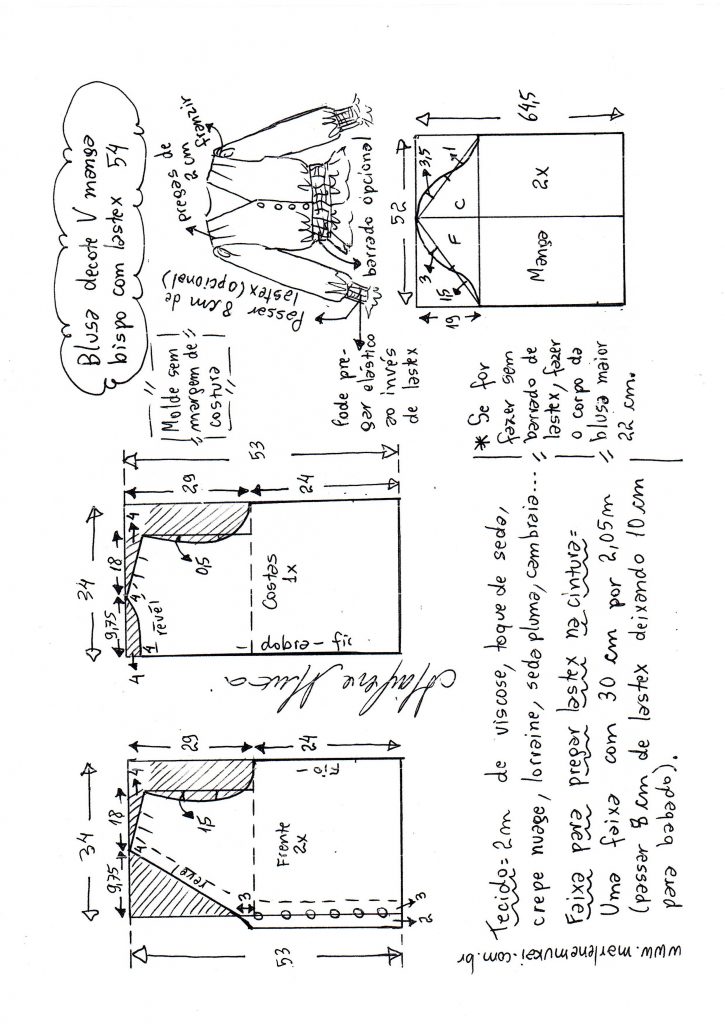 Blusa decote V manga
bispo com lastex 54
Molde sem
margem de
costura
pregas de
2 cm
franzir
Passar
8 cm de
lastex (opcional)
barrado opcional
Pode pre-
gar elástico
ao invés
de lastex
52
64,5
19
3
15
3,5
1
F
C
Manga
2x
* Se for
fazer sem
barrado de
lastex, fazer
o corpo da
blusa maior
22 cm.
34
9,75
18
4
4
4
4
revel
0,5
29
24
53
Costas
1x
fio - dobra
Marlene Mukai
34
9,75
18
4
4
revel
15
29
24
53
3
3
2
Frente
2x
fio
Tecido = 2m de viscose, toque de seda,
crepe nuage, lorraine, seda pluma, cambraia...
Faixa para pregar lastex na cintura =
Uma faixa com 30 cm por 2,05m
(passar 8 cm de lastex deixando 10 cm
para babado).
www.marlenemukai.com.br